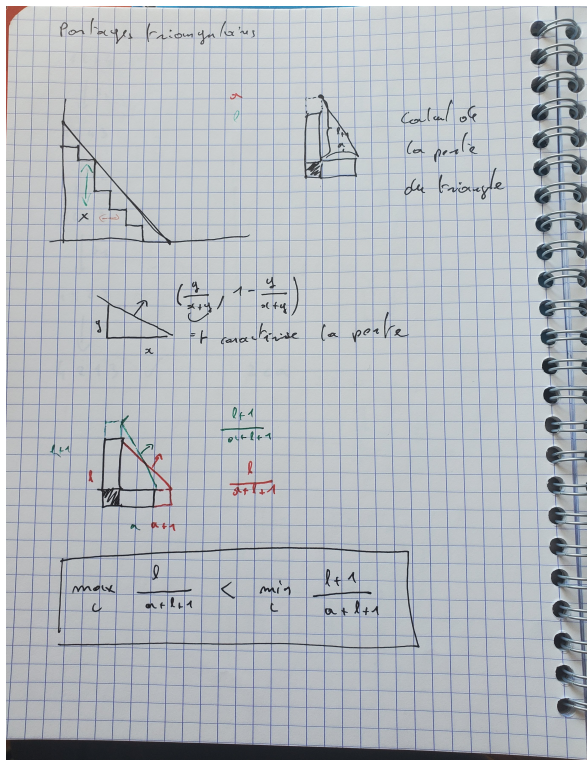 Partages triangulaires
calcul de
la pente
du triangle
l+1
a
x
(y/(x+y), 1 - y/(x+y))
= t caractérise la pente
y
x
l+1
l
a a+1
(l+1)/(a+l+1)
l/(a+l+1)
max_c l/(a+l+1) < min_c (l+1)/(a+l+1)